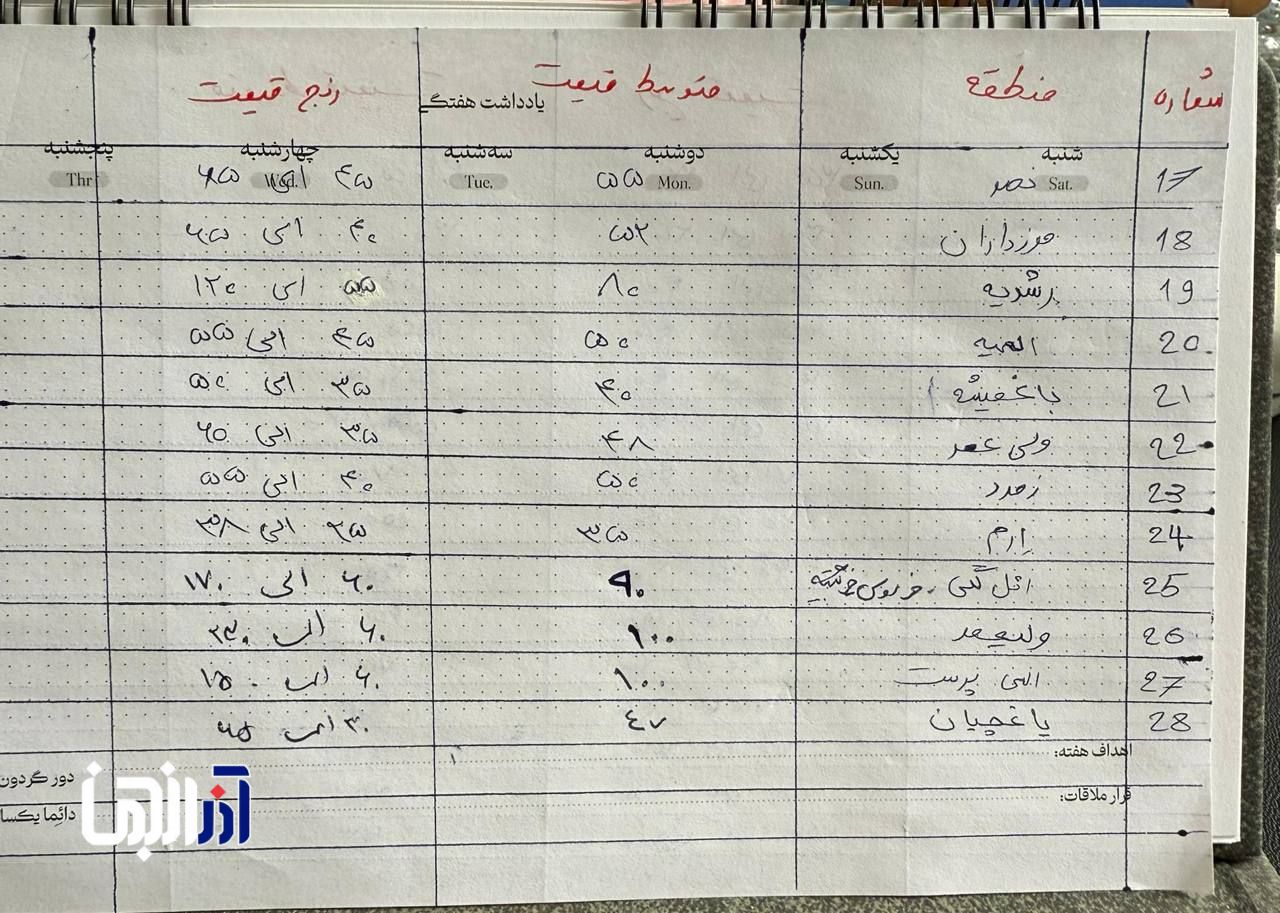 شماره منطقه متوسط قیمت رنج قیمت
یادداشت هفتگی
شنبه یکشنبه دوشنبه سه‌شنبه چهارشنبه پنجشنبه
Sat. Sun. Mon. Tue. Wed. Thr
17 نصر ۵۵ ۴۵ الی ۶۵
18 مرزداران ۵۲ ۴۰ الی ۶۵
19 رشدیه ۸۰ ۵۵ الی ۱۲۰
20 الهیه ۵۰ ۴۵ الی ۵۵
21 باغمیشه ۴۰ ۳۵ الی ۵۰
22 ولی عصر ۴۸ ۳۵ الی ۶۰
23 زمرد ۵۰ ۴۰ الی ۵۵
24 ارم ۳۵ ۲۵ الی ۳۸
25 ائل گلی، فردوس ۹۰ ۶۰ الی ۱۷۰
26 ولیعهد ۱۰۰ ۶۰ الی ۲۳۰
27 الهی پرست ۱۰۰ ۶۰ الی ۱۵۰
28 یاغچیان ۴۷ ۳۰ الی ۶۵
اهداف هفته:
قرار ملاقات:
دور گردون
دائما یکسا
آذرانجمن